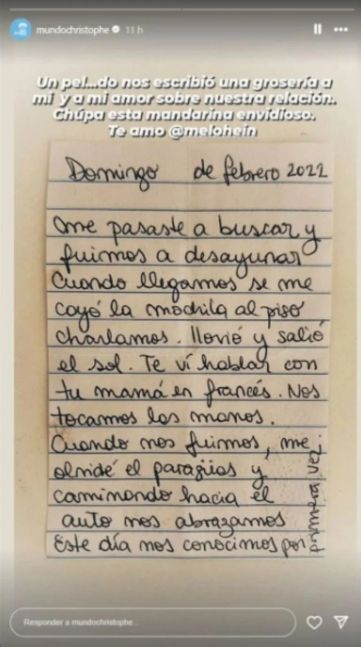 mundochristophe 11 h
Un pel...do nos escribió una grosería a
mi y a mi amor sobre nuestra relación.
Chúpa esta mandarina envidioso.
Te amo @melohein
Domingo de febrero 2022
me pasaste a buscar y
fuimos a desayunar
Cuando llegamos se me
cayó la mochila al piso
charlamos. llovió y salió
el sol. Te ví hablar con
tu mamá en francés. Nos
tocamos las manos.
Cuando nos fuimos, me
olvidé el paragüas y
caminando hacia el
auto nos abrazamos
Este día nos conocimos por
primera vez.
Responder a mundochristophe...